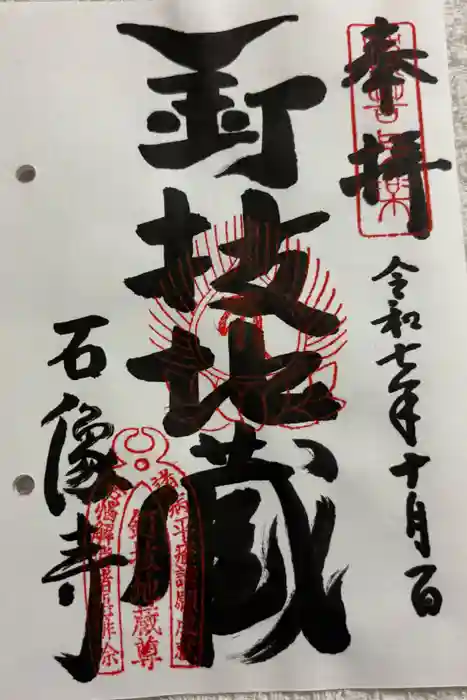 奉拝
令和七年十月一日
釘抜地蔵
石像寺
釘抜地蔵尊